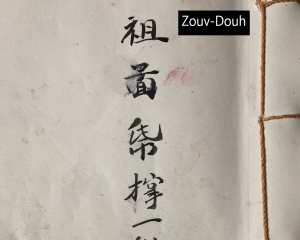 Zouv-Douh
祖
啚
帋
撑
一